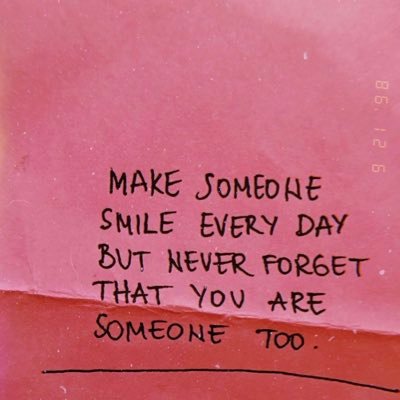 MAKE SOMEONE
SMILE EVERY DAY
BUT NEVER FORGET
THAT YOU ARE
SOMEONE TOO.